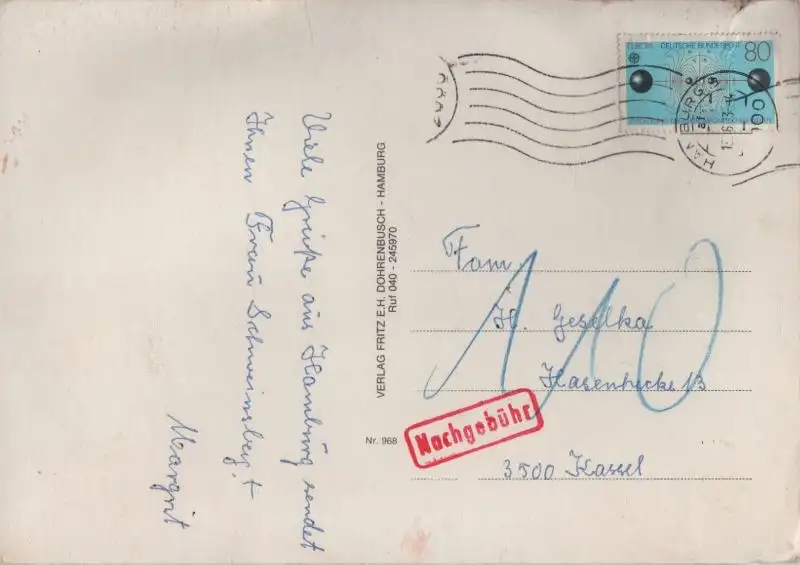 Viele Grüße aus Hamburg sendet
Ihnen Frau Schweinsberg +
Margrit
VERLAG FRITZ E.H. DOHRENBUSCH - HAMBURG
Ruf 040 - 245970
Nr. 968
EUROPA DEUTSCHE BUNDESPOST 80
HAMBURG
Fam.
H. Geselka
Hasenhecke 13
3500 Kassel
110
Nachgebühr